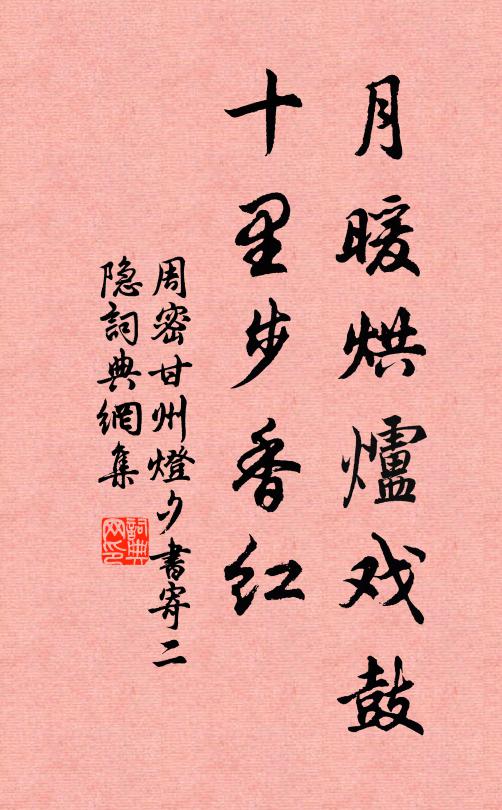 月暖烘爐戏鼓
十里步香红
周密甘州燈夕書寄二
隐詞典網集
詞典
网印